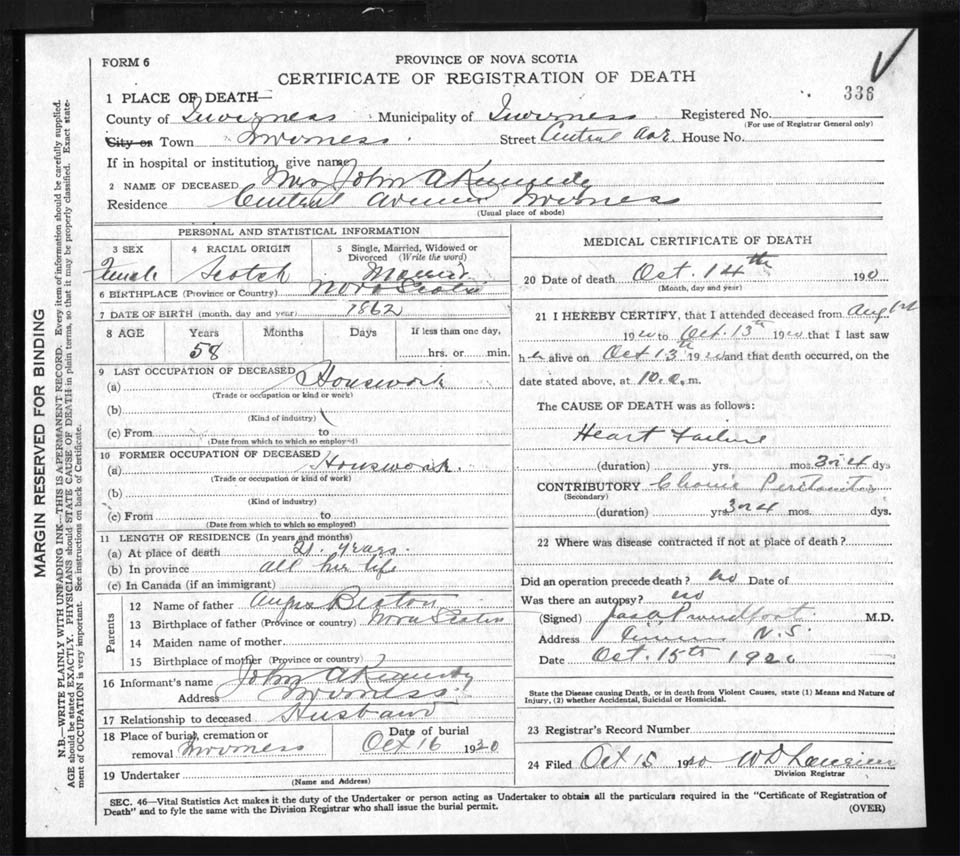 FORM 6
PROVINCE OF NOVA SCOTIA
CERTIFICATE OF REGISTRATION OF DEATH
336
1 PLACE OF DEATH—
County of Inverness Municipality of Inverness Registered No.
(For use of Registrar General only)
City or Town Inverness Street Central Ave House No.
If in hospital or institution, give name
2 NAME OF DECEASED Mrs John A Kennedy
Residence Central Avenue Inverness
(Usual place of abode)
PERSONAL AND STATISTICAL INFORMATION
3 SEX 4 RACIAL ORIGIN 5 Single, Married, Widowed or Divorced (Write the word)
Female Scotch Married
6 BIRTHPLACE (Province or Country) Nova Scotia
7 DATE OF BIRTH (month, day and year) 1862
8 AGE Years Months Days If less than one day,
58 hrs. or min.
9 LAST OCCUPATION OF DECEASED
(a) Housework
(Trade or occupation or kind or work)
(b)
(Kind of industry)
(c) From to
(Date from which to which so employed)
10 FORMER OCCUPATION OF DECEASED
(a) Housework.
(Trade or occupation or kind of work)
(b)
(Kind of industry)
(c) From to
(Date from which to which so employed)
11 LENGTH OF RESIDENCE (In years and months)
(a) At place of death 21 years.
(b) In province all her life
(c) In Canada (if an immigrant)
Parents
12 Name of father Angus Beaton
13 Birthplace of father (Province or country) Nova Scotia
14 Maiden name of mother
15 Birthplace of mother (Province or country)
16 Informant's name John A Kennedy
Address Inverness
17 Relationship to deceased Husband
18 Place of burial, cremation or removal Inverness Date of burial Oct 16 1920
19 Undertaker
(Name and Address)
MEDICAL CERTIFICATE OF DEATH
20 Date of death Oct. 14th 190
(Month, day and year)
21 I HEREBY CERTIFY, that I attended deceased from
1920 to Oct. 13th 1920 that I last saw
her alive on Oct 13th 1920 and that death occurred, on the
date stated above, at 10.a.m.
The CAUSE OF DEATH was as follows:
Heart Failure
(duration) yrs. mos. 3 or 4 dys
CONTRIBUTORY Chronic Peritonitis
(Secondary)
(duration) yrs 3 or 4 mos. dys.
22 Where was disease contracted if not at place of death?
Did an operation precede death? no Date of
Was there an autopsy? no
(Signed) M.D.
Address N.S.
Date Oct. 15th 1920
State the Disease causing Death, or in death from Violent Causes, state (1) Means and Nature of
Injury, (2) whether Accidental, Suicidal or Homicidal.
23 Registrar's Record Number
24 Filed Oct 15 1920
Division Registrar
SEC. 46—Vital Statistics Act makes it the duty of the Undertaker or person acting as Undertaker to obtain all the particulars required in the "Certificate of Registration of
Death" and to fyle the same with the Division Registrar who shall issue the burial permit.
(OVER)
MARGIN RESERVED FOR BINDING
N.B.—WRITE PLAINLY WITH UNFADING INK—THIS IS A PERMANENT RECORD. Every item of information should be carefully supplied.
AGE should be stated EXACTLY. PHYSICIANS should STATE CAUSE OF DEATH in plain terms, so that it may be properly classified. Exact state-
ment of OCCUPATION is very important. See instructions on back of Certificate.